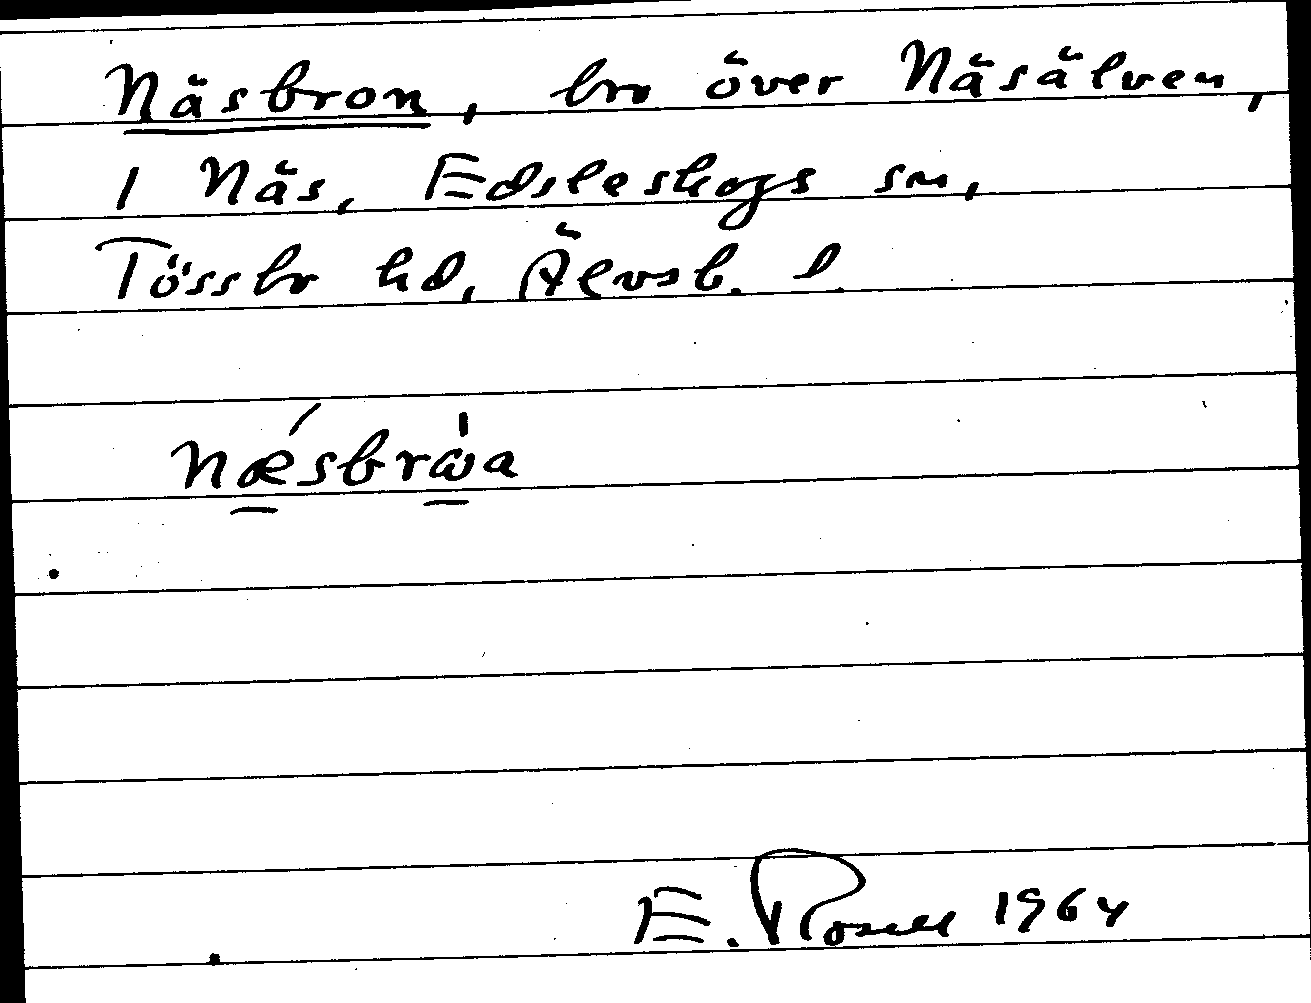 Näsbron, bro över Näsälven,
i Näs, Edsleskogs sn,
Tössbo hd, Älvsb. l.
nǽ̲sbrω̲̍a
E. Rosell 1964